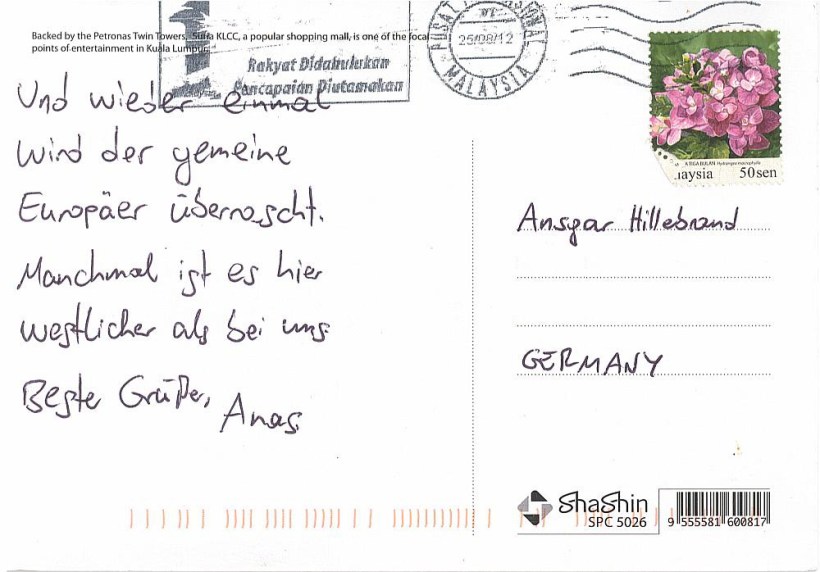 Backed by the Petronas Twin Towers, Suria KLCC, a popular shopping mall, is one of the focal
points of entertainment in Kuala Lumpur.
Rakyat Didahulukan
Pencapaian Diutamakan
PUSAT
25/08/12
MALAYSIA
Und wieder einmal
wird der gemeine
Europäer überrascht.
Manchmal ist es hier
westlicher als bei uns
Beste Grüße, Anas
laysia 50sen
Ansgar Hillebrand
GERMANY
ShaShin
SPC 5026
9 555581 600817